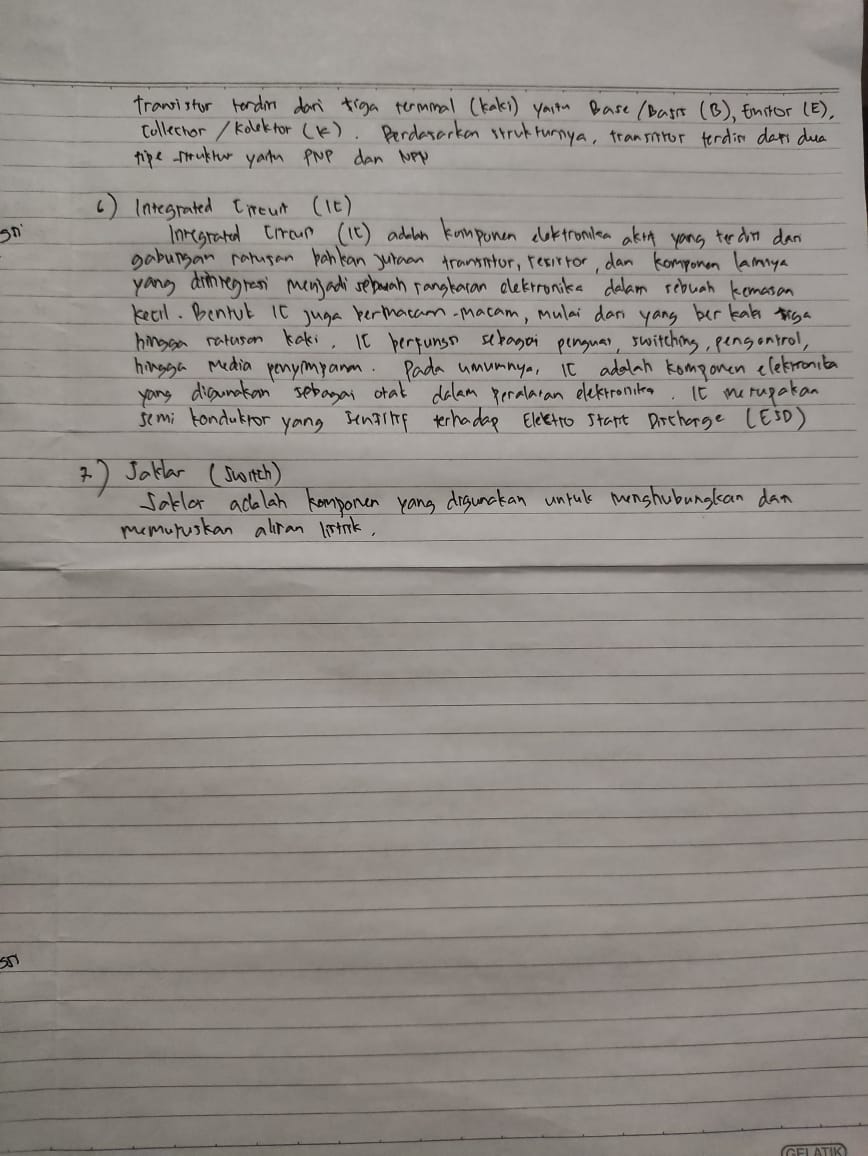 transistor terdiri dari tiga terminal (kaki) yaitu Base/Basis (B), Emitor (E),
Collector / Kolektor (K). Berdasarkan strukturnya, transistor terdiri dari dua
tipe struktur yaitu PNP dan NPN
6) Integrated Circuit (IC)
Integrated Circuit (IC) adalah komponen elektronika aktif yang terdiri dari
gabungan ratusan bahkan jutaan transistor, resistor, dan komponen lainnya
yang diintegrasi menjadi sebuah rangkaian elektronika dalam sebuah kemasan
kecil. Bentuk IC juga bermacam-macam, mulai dari yang berkaki tiga
hingga ratusan kaki. IC berfungsi sebagai penguat, switching, pengontrol,
hingga media penyimpanan. Pada umumnya, IC adalah komponen elektronika
yang digunakan sebagai otak dalam peralatan elektronika. IC merupakan
semi konduktor yang sensitif terhadap Elektro Static Discharge (ESD)
7) Saklar (Switch)
Saklar adalah komponen yang digunakan untuk menghubungkan dan
memutuskan aliran listrik.
GELATIK